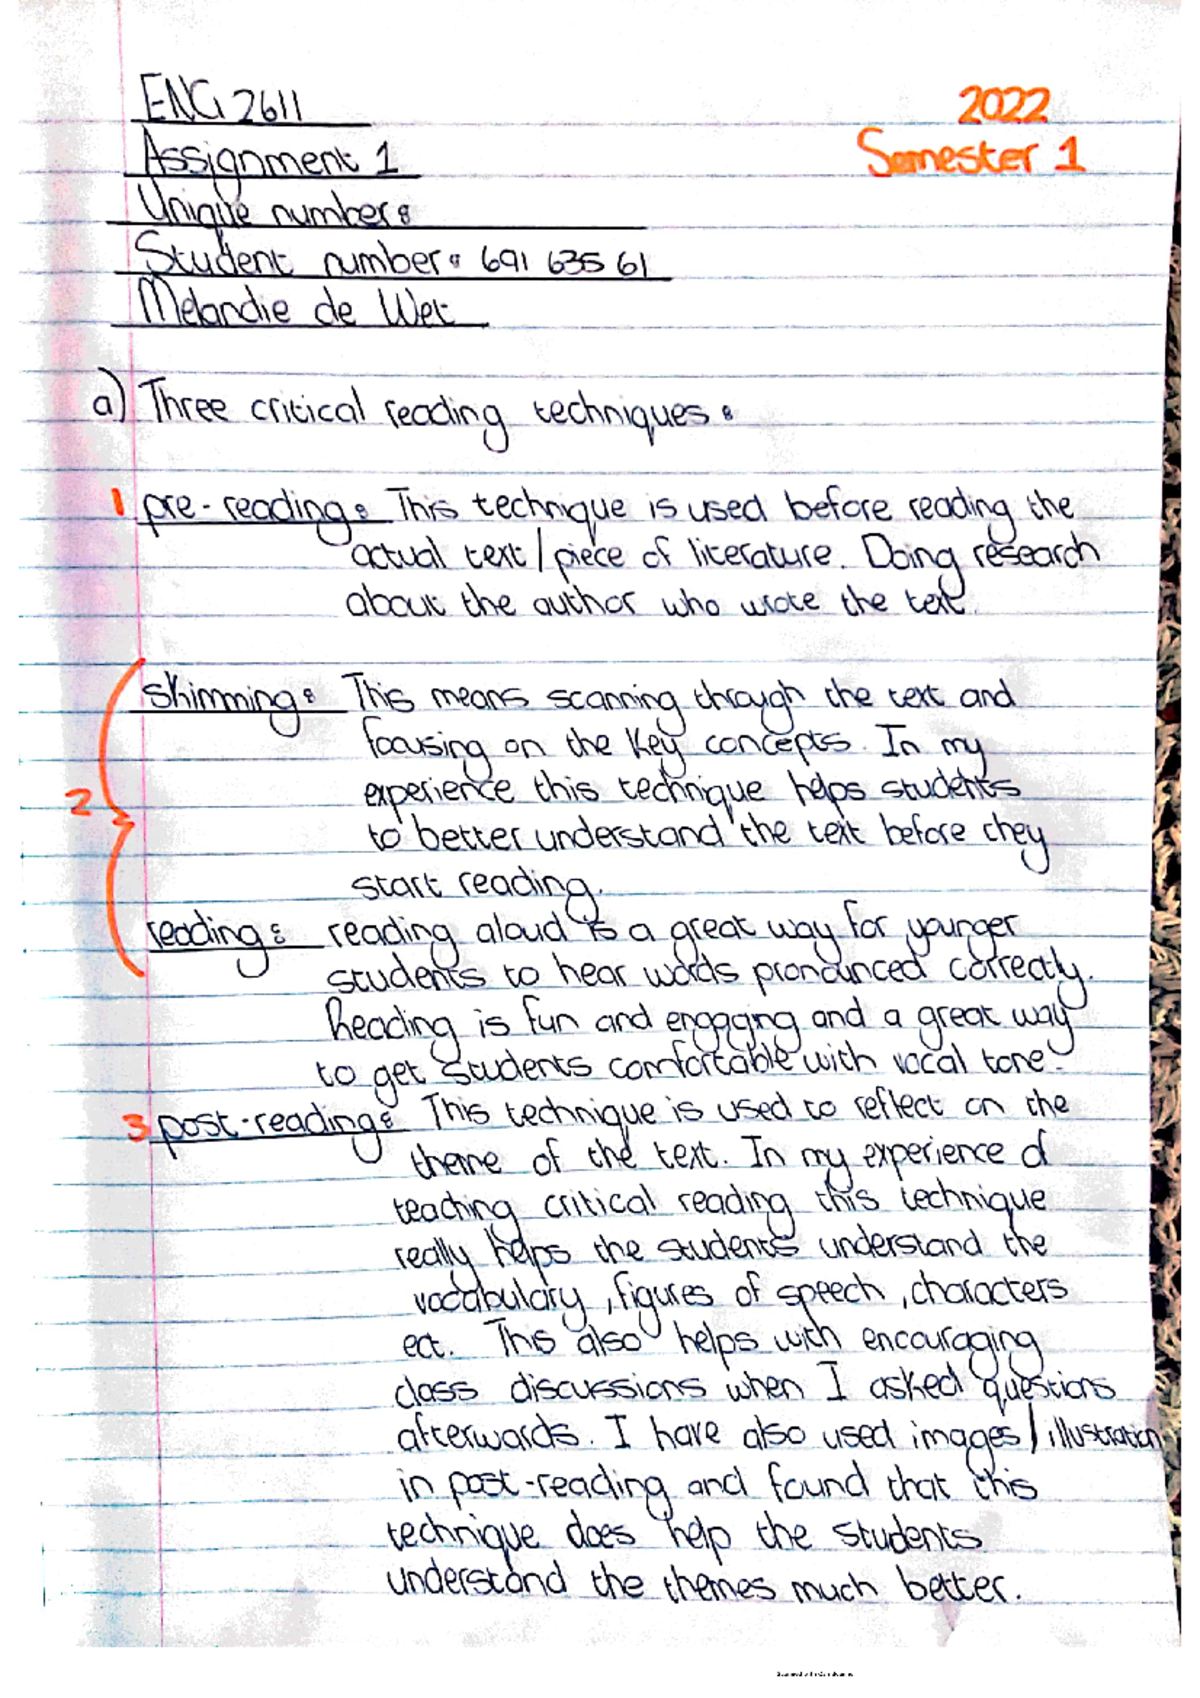 ENG 2611
2022
Assignment 1
Semester 1
Unique number:
Student number: 691 635 61
Melandie de Wet
a) Three critical reading techniques:
1 pre-reading: This technique is used before reading the
actual text / piece of literature. Doing research
about the author who wrote the text.
skimming: This means scanning through the text and
focusing on the key concepts. In my
2 experience this technique helps students
to better understand the text before they
start reading.
reading: reading aloud is a great way for younger
students to hear words pronounced correctly.
Reading is fun and engaging and a great way
to get students comfortable with vocal tone.
3 post-reading: This technique is used to reflect on the
theme of the text. In my experience of
teaching critical reading this technique
really helps the students understand the
vocabulary, figures of speech, characters
ect. This also helps with encouraging
class discussions when I asked questions
afterwards. I have also used images / illustration
in post-reading and found that this
technique does help the students
understand the themes much better.